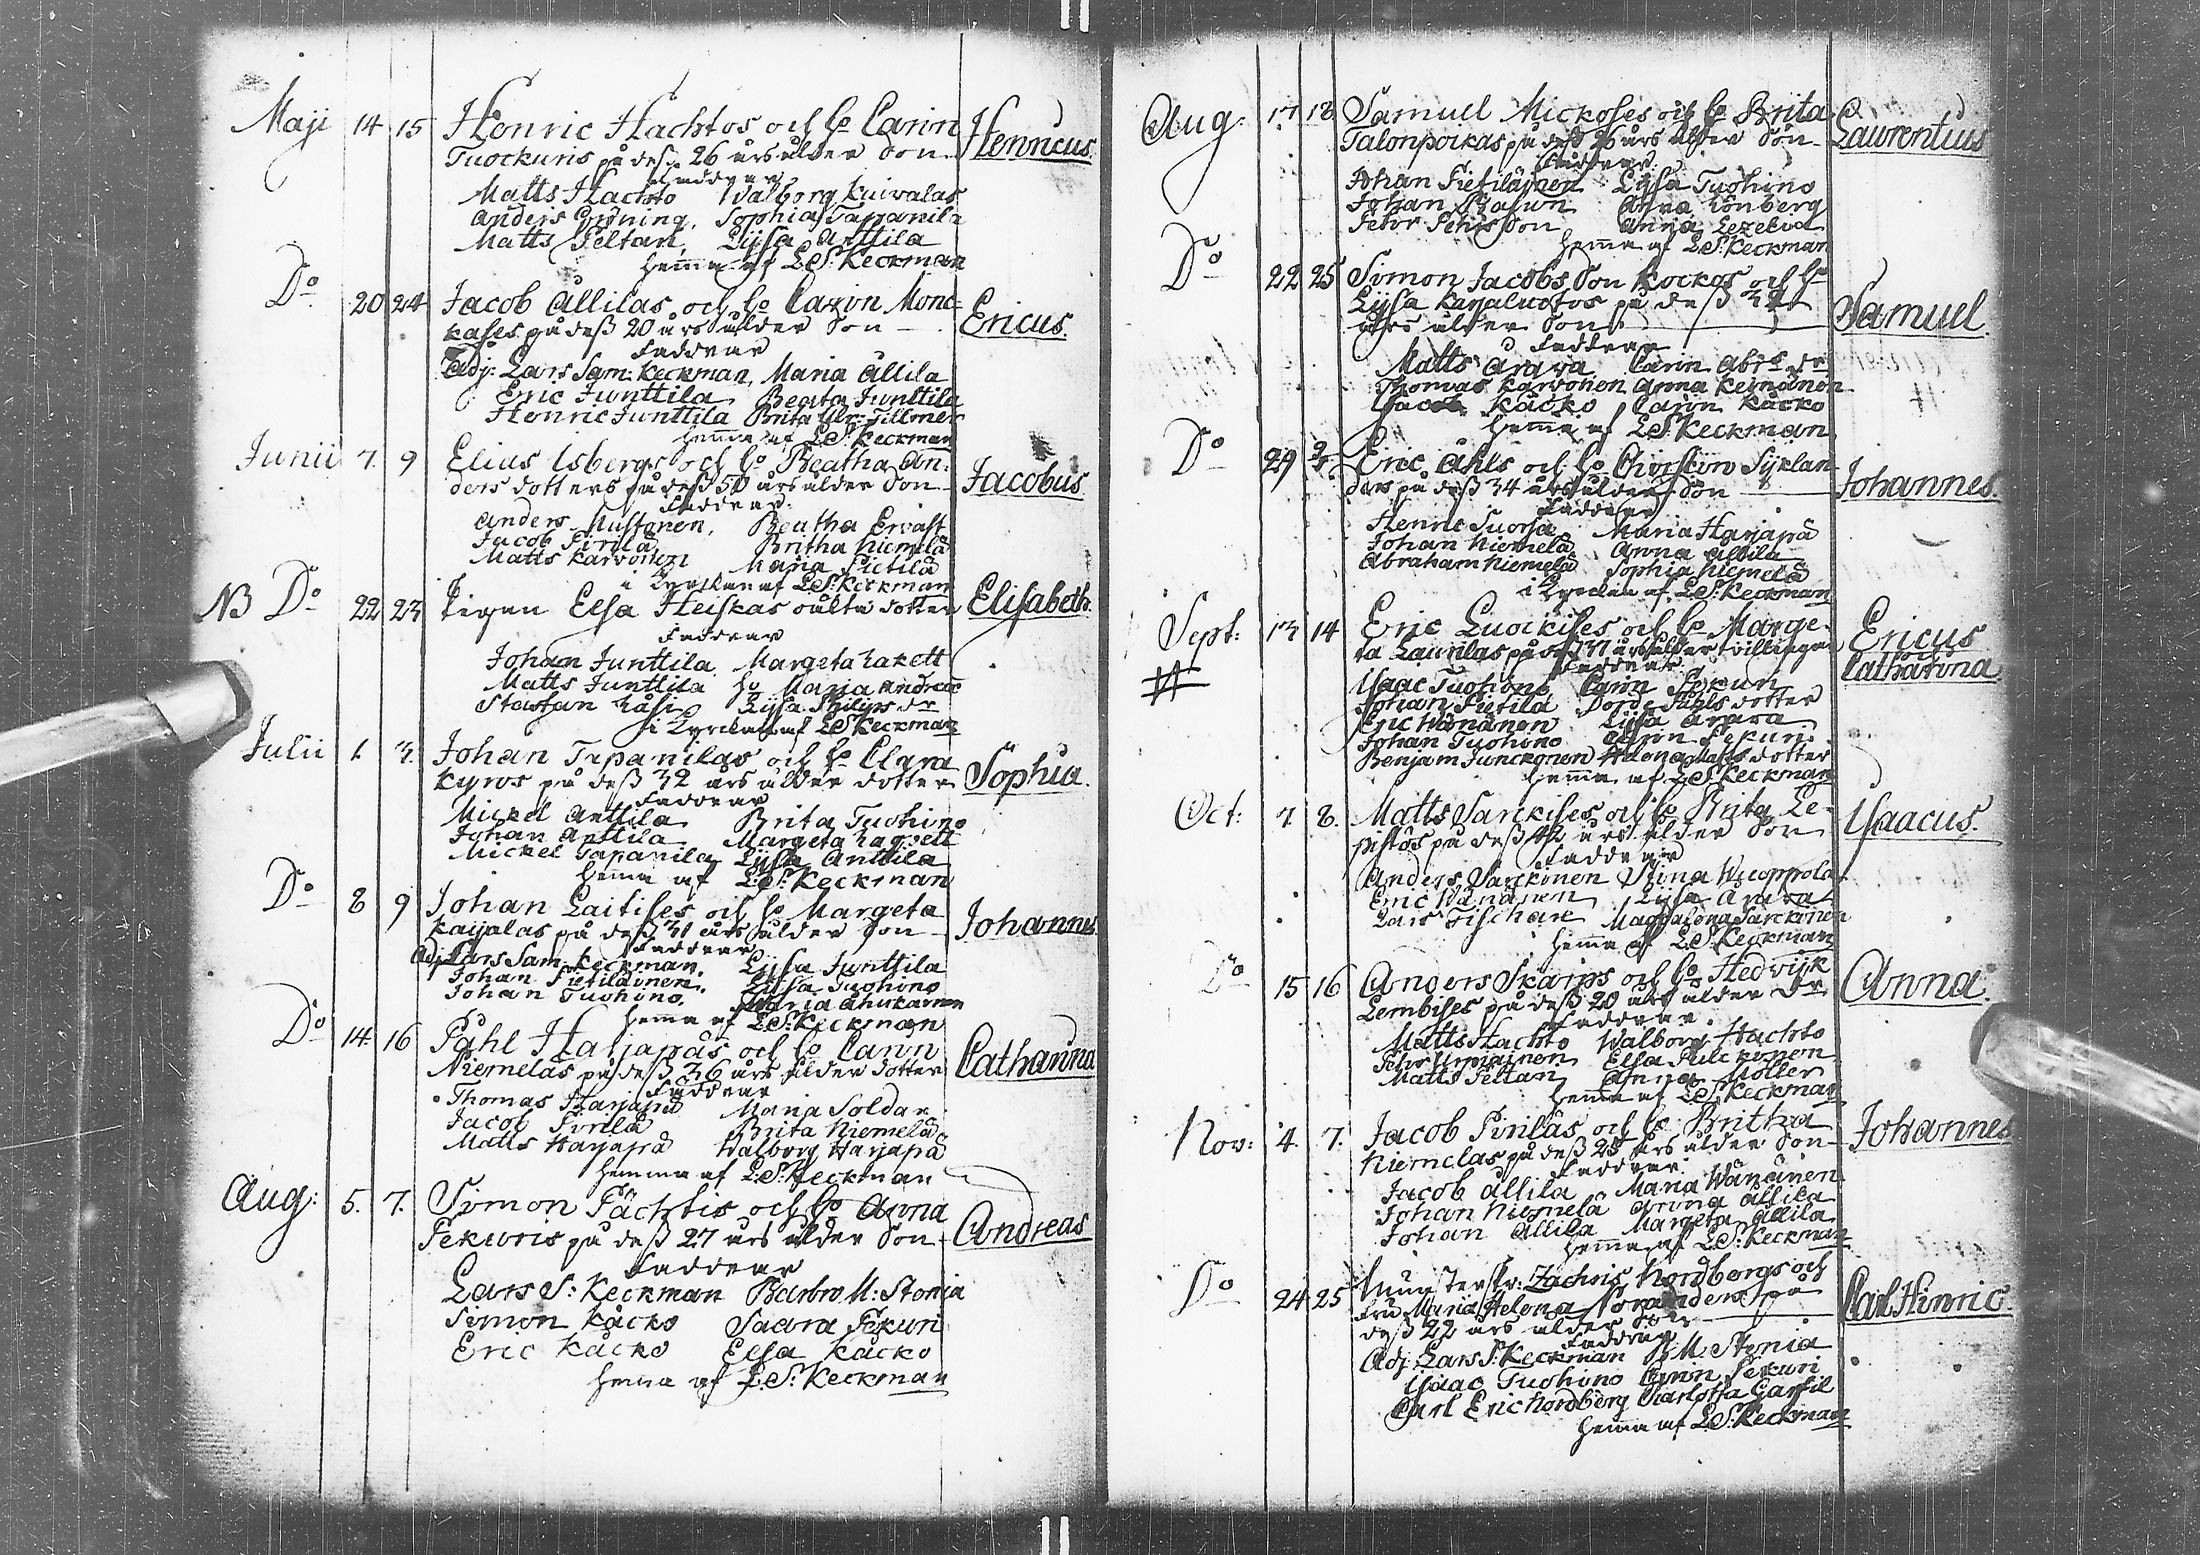 Maji 14 15 Henric Hachtos och H:o Carin Henricus
Tuockuris på dess 26 års ålder Son
Faddrar
Matts Hachto Walborg Kuivalas
Anders Sophia Tapanila
Matts Peltari, Lijsa Anttila
hemma af L.S. Keckman
D:o 20 24 Jacob Allilas och H:o Carin Monc- Ericus
kases på dess 20 års ålder Son
Faddrar
Adj: Lars Sam: Keckman, Maria Allila
Eric Junttila Beata Junttila
Henric Junttila Brita
hemma af L.S. Keckman
Junii 7. 9 Elias Isbergs och H:o Beatha An- Jacobus
ders dotters på dess 50 års ålder Son
Faddrar
Anders Mustonen, Beatha Ervast
Jacob Pirilä Britha Niemelä
Matts Karvonen Maria Pietilä
i Kyrckan af L.S. Keckman
NB D:o 22 23 Pigan Elsa Heiskas oälta dotter Elisabeth.
Faddrar
Johan Junttila Margeta
Matts Junttila H:o Maria Andreae
Staffan Käsi Lijsa Philips dr
i Kyrckan af L.S. Keckman
Julii 1. 3. Johan Tapanilas och H:o Clara Sophia.
Kyros på dess 32 års ålder dotter
Faddrar
Mickel Anttila Brita Tuohino
Johan Anttila Margeta
Mickel Tapanila Lijsa Anttila
hemma af L.S. Keckman
D:o 8 9 Johan Laitises och H:o Margeta Johannes
Kaijalas på dess 31 års ålder Son
Faddrar
Adj: Lars Sam: Keckman. Lijsa Junttila
Johan Pietiläinen. Lijsa Tuohino
Johan Tuohino. Maria
hemma af L.S. Keckman
D:o 14. 16 Påhl Harjapäs och H:o Carin Catharina
Niemeläs på dess 36 års ålder dotter
Faddrar
Thomas Harjapä Maria Soldan
Jacob Pirilä Brita Niemelä
Matts Harjapä Walborg Harjapä
hemma af L.S. Keckman
Aug: 5. 7. Simon Pächtis och H:o Anna Andreas
Pekuris på dess 27 års ålder Son
Faddrar
Lars S: Keckman Barbro M: Stenia
Simon Käcko Saara Pekuri
Eric Käcko Elsa Käcko
hemma af L.S. Keckman
Aug: 17 18 Samuel Mickoses och H:o Brita Laurentius
Talonpoikas på dess 26 års ålder Son
Faddrar
Johan Pietiläinen Lijsa Tuohino
Johan Anna Lönberg
Petter Pehrsson Anna
hemma af L.S. Keckman
D:o 22 25 Simon Jacobs Son Kockos och H:o Samuel.
Lijsa på dess 32
års ålder Son
Faddrar
Matts Arava Carin Abrs dr
Thomas Karvonen Anna Keinänen
Käcko Carin Käcko
hemma af L.S. Keckman
D:o 29 Eric Åhls och H:o Christin Sijklan- Johannes.
ders på dess 34 års ålder Son
Faddrar
Henric Tuorsa Maria Harjapä
Johan Niemelä Anna Allila
Abraham Niemelä Sophia Niemelä
i Kyrckan af L.S. Keckman
Sept: 13 14 Eric Luockises och H:o Marge- Ericus
ta Laurilas på dess 31 års ålder tvillingar och
Faddrar Catharina
Isaac Tuohino Carin Pekuri
Johan Pietilä Påhls dotter
Eric Wänänen Lijsa Arava
Johan Tuohino Carin Pekuri
Benjam Junckonen Helena Matts dotter
hemma af L.S. Keckman
Oct: 7. 8. Matts Sarkises och H:o Brita Le- Isaacus.
pistös på dess 42 års ålder Son
Faddrar
Anders Sarckinen Stina Wuoppola
Eric Wänänen Lijsa Arava
Lars Fischare Magdalena Sarckinen
hemma af L.S. Keckman
D:o 15 16 Anders Skarps och H:o Hedvijk Anna.
Lembises på dess 20 års ålder dr
Faddrar.
Matts Hachto Walborg Hachto
Pehr Urpiainen Elsa Pulckonen
Matts Peltari Anna Möller
hemma af L.S. Keckman
Nov: 4. 7. Jacob Piriläs och H:o Britha Johannes
Niemelas på dess 25 års ålder Son
Faddrar.
Jacob Allila Maria Wänänen
Johan Niemelä Anna Allila
Johan Allila Margeta Allila
hemma af L.S. Keckman
D:o 24 25 Zachris Nordbergs och Carl Hinric.
Fru Maria Helena på
dess 22 års ålder Son
Faddrar
Adj: Lars S: Keckman B M Stenia
Isaac Tuohino Carin Pekuri
Carl Eric Nordberg Charlotta
hemma af L.S. Keckman